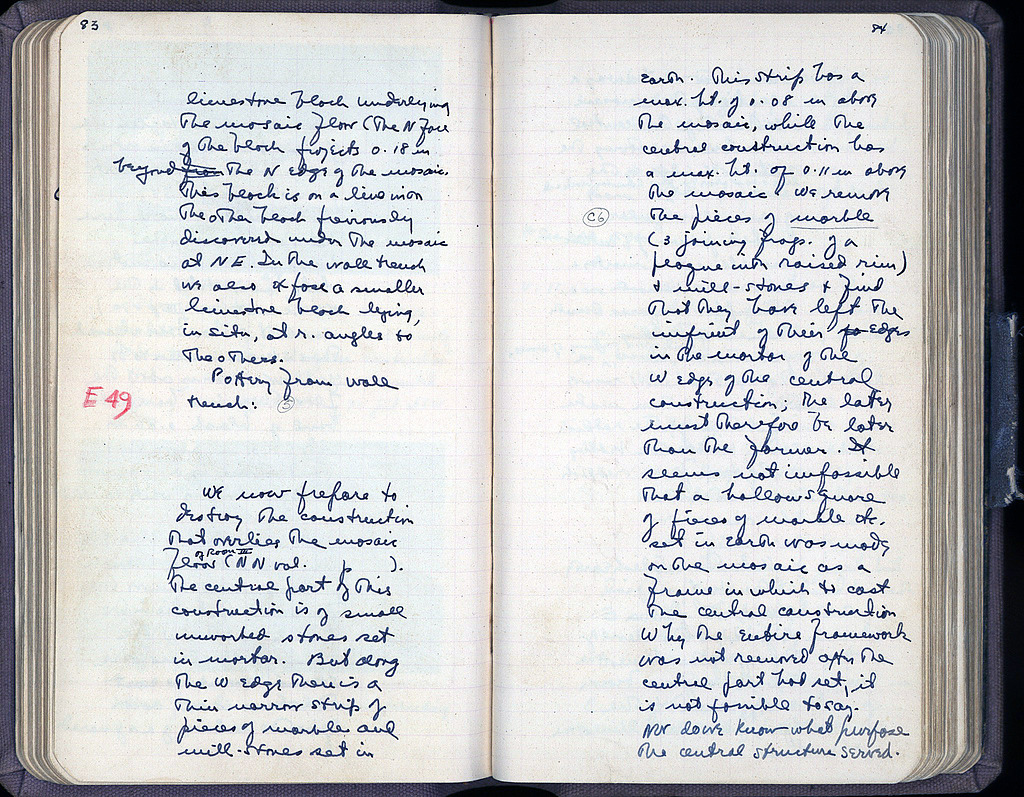 83
limestone block underlying
the mosaic floor (the N face
of the block projects 0.18 m
beyond from the N edge of the mosaic.
This block is on a line with
the other block previously
discovered under the mosaic
at NE. In the wall trench
we also expose a smaller
limestone block lying,
in situ, at r. angles to
the others.
Pottery from wall
trench. 5
E 49
We now prepare to
destroy the construction
that overlies the mosaic
of Room III
floor (NN vol. p ).
The central part of this
construction is of small
unworked stones set
in mortar. But along
the W edge there is a
thin narrow strip of
pieces of marble and
mill-stones set in
84
earth. This strip has a
max. ht. of 0.08 m above
the mosaic, while the
central construction has
a max. ht. of 0.11 m above
the mosaic. We remove
C6 the pieces of marble
(3 joining frags. of a
plaque with raised rim)
& mill-stones & find
that they have left the
imprint of their edges
in the mortar of the
W edge of the central
construction; the latter
must therefore be later
than the former. It
seems not impossible
that a hollow square
of pieces of marble etc.
set in earth was made
on the mosaic as a
frame in which to cast
the central construction
Why the entire framework
was not removed after the
central part had set, it
is not possible to say.
Nor do we know what purpose
the central structure served.